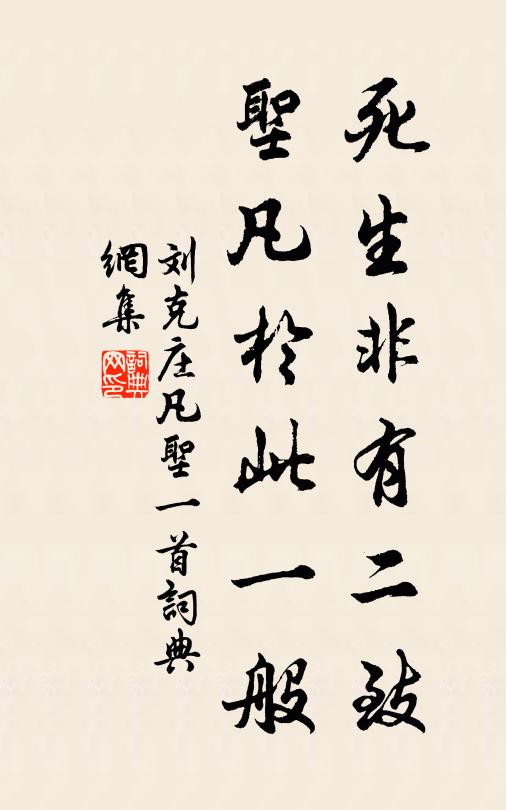 死生非有二致
聖凡於此一般
刘克庄凡聖一首詞典
網集
詞典
网印